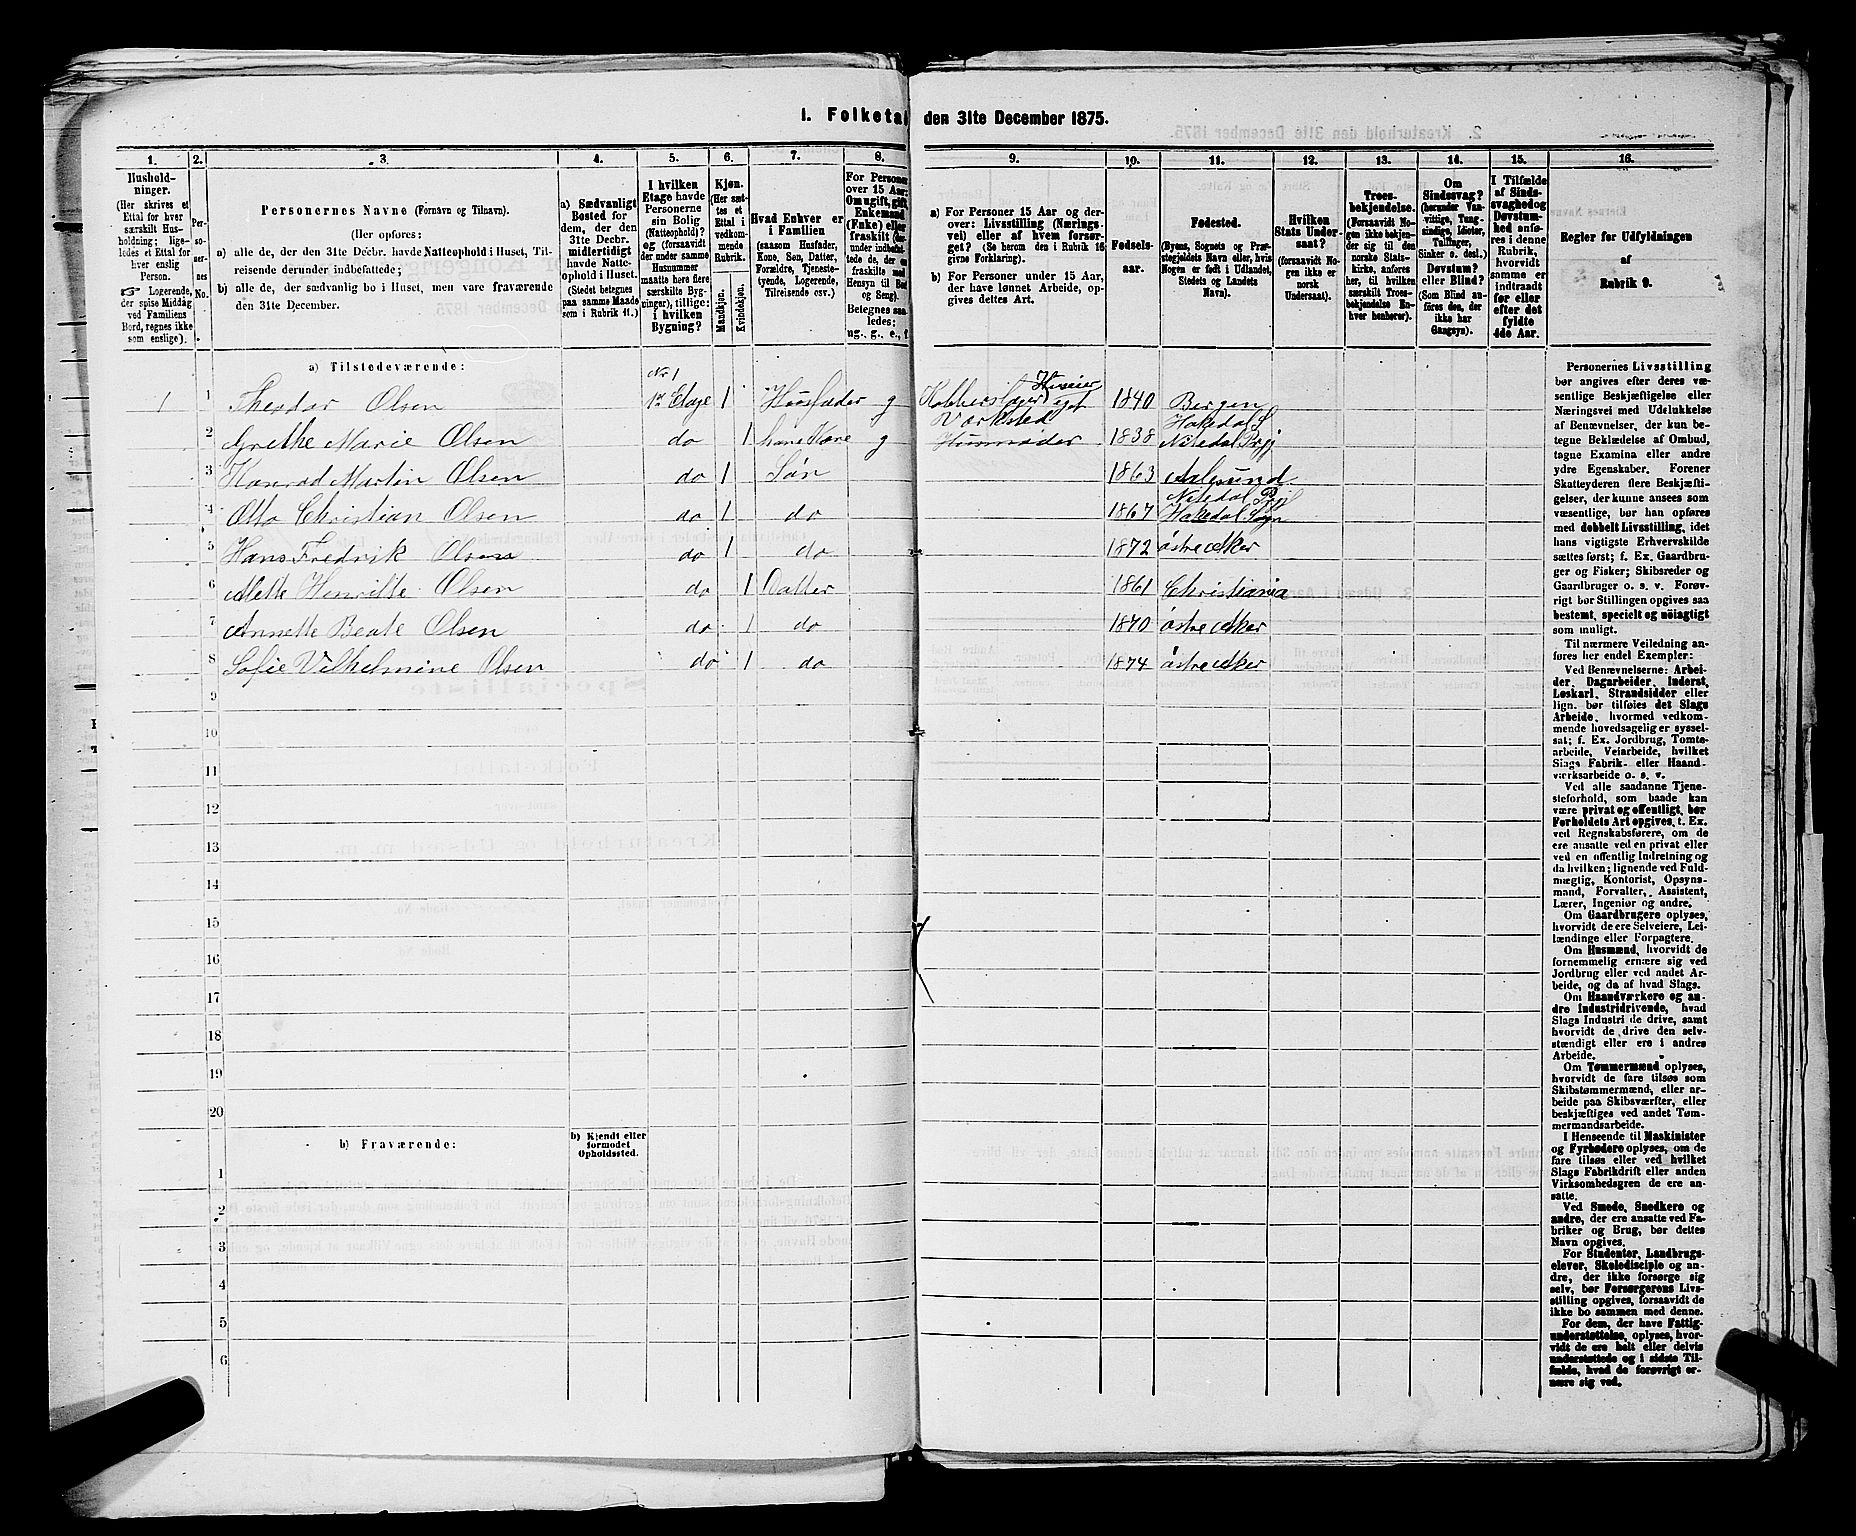 1. Folketal den 31te December 1875.
1. 2. 3. 4. 5. 6. 7. 8. 9. 10. 11. 12. 13. 14. 15. 16.
Hushold-
ninger.
(Her skrives et
Ettal for hver
særskilt Hus-
holdning; lige-
ledes et Ettal for
hver enslig
Person.
☞ Logerende,
der spise Middag
ved Familiens
Bord, regnes ikke
som enslige).
Per-
so-
ner-
nes
No.
Personernes Navne (Fornavn og Tilnavn).
(Her opføres:
a) alle de, der den 31te Decbr. havde Natteophold i Huset, Til-
reisende derunder indbefattede;
b) alle de, der sædvanlig bo i Huset, men vare fraværende
den 31te December.
a) Sædvanligt
Bosted for
dem, der den
31te Decbr.
midlertidigt
havde Natte-
ophold i Huset.
(Stedet betegnes
paa samme Maade
som i Rubrik 11.)
I hvilken
Etage havde
Personerne
sin Bolig
(Natteophold)?
og (forsaavidt
der under samme
Husnummer
maatte høre flere
særskilte Byg-
ninger), tillige:
i hvilken
Bygning?
Kjøn.
(Her sæt-
tes et
Ettal i
vedkom-
mende
Rubrik.
Mandkjøn.
Kvindekjøn.
Hvad Enhver er
i Familien
(saasom Husfader,
Kone, Søn, Datter,
Forældre, Tjeneste-
tyende, Logerende,
Tilreisende osv.)
For Personer
over 15 Aar:
Om ugift, gift,
Enkemand
(Enke) eller
fraskilt
Betegnes saa-
ledes:
ug., g., e., f.
a) For Personer 15 Aar og der-
over: Livsstilling (Nærings-
vei) eller af hvem forsør-
get? (Se herom den i Rubrik 16
givne Forklaring).
b) For Personer under 15 Aar,
der have lønnet Arbeide, op-
gives dettes Art.
Fødsels-
aar.
Fødested.
(Byens, Sognets og Præ-
stegjeldets Navn eller, hvis
Nogen er født i Udlandet,
Stedets og Landets
Navn).
Hvilken
Stats Under-
saat?
(forsaavidt No-
gen ikke er
norsk
Undersaat).
Troes-
bekjendelse.
(Forsaavidt No-
gen ikke bekjen-
der sig til den
norske Stats-
kirke, anføres
her, til hvilken
særskilt Troes-
bekjendelse En-
hver henhører).
Om
Sindssvag?
(herunder Van-
vittige, Tung-
sindige, Idioter,
Tullinger,
Sinker o. desl.)
Døvstum?
eller Blind?
(Som Blind an-
føres den, der
ikke har
Gangsyn).
I Tilfælde
af Sinds-
svaghed og
Døvstum-
hed anfø-
res i denne
Rubrik,
hvorvidt
samme er
indtraadt
før eller
efter det
fyldte
4de Aar.
Regler for Udfyldningen
af
Rubrik 9.
a) Tilstedeværende:
1 1 Theodor Olsen No 1 1st Etage 1 Husfader g Kobberslager Huseier eget Værksted 1840 Bergen
2 Grethe Marie Olsen do 1 hans Kone g Husmoder 1838 Hakedal S Nitedal Prgj
3 Konrad Martin Olsen do 1 Søn 1863 Aalesund
4 Otto Christian Olsen do 1 do 1867 Nitedal Prgj Hakedal Sogn
5 Hans Fredrik Olsen do 1 do 1872 østre Aker
6 Mette Henritte Olsen do 1 Datter 1861 Christiania
7 Annette Beate Olsen do 1 do 1870 østre Aker
8 Sofie Vilhelmine Olsen do 1 do 1874 østre Aker
9
10
11
12
13
14
15
16
17
18
19
20
b) Fraværende:
b) Kjendt eller
formodet
Opholdssted.
1
2
3
4
5
6
Personernes Livsstilling
bør angives efter deres væ-
sentlige Beskjæftigelse eller
Næringsvei med Udelukkelse
af Benævnelser, der kun be-
tegne Beklædelse af Ombud,
tagne Examina eller andre
ydre Egenskaber. Forener
Skatteyderen flere Beskjæfti-
gelser, der kunne ansees som
væsentlige, bør han opføres
med dobbelt Livsstilling, idet
hans vigtigste Erhvervskilde
sættes først; f. Ex. Gaardbru-
ger og Fisker; Skibsreder og
Gaardbruger o. s. v. Forøv-
rigt bør Stillingen opgives saa
bestemt, specielt og nøiagtigt
som muligt.
Til nærmere Veiledning an-
føres her endel Exempler:
Ved Benævnelserne: Arbei-
der, Dagarbeider, Inderst,
Løskarl, Strandsidder eller
lign. bør tilføies det Slags
Arbeide, hvormed vedkom-
mende hovedsagelig er syssel-
sat; f. Ex. Jordbrug, Tomte-
arbeide, Veiarbeide, hvilket
Slags Fabrik- eller Haand-
værksarbeide o. s. v.
Ved alle saadanne Tjene-
steforhold, som baade kan
være privat og offentligt, bør
Forholdets Art opgives, t. Ex.
ved Regnskabsførere, om de
ere ansatte ved en privat eller
ved en offentlig Indretning og
da hvilken; lignende ved Fuld-
mægtig, Kontorist, Opsyns-
mand, Forvalter, Assistent,
Lærer, Ingeniør og andre.
Om Gaardbrugere oplyses,
hvorvidt de ere Selveiere, Lei-
lændinge eller Forpagtere.
Om Husmænd, hvorvidt de
fornemmelig ernære sig ved
Jordbrug eller ved andet Ar-
beide, og da af hvad Slags.
Om Haandværkere og an-
dre Industridrivende, hvad
Slags Industri de drive, samt
hvorvidt de drive den selv-
stændigt eller ere i andres
Arbeide.
Om Tømmermænd oplyses,
hvorvidt de fare tilsøs som
Skibstømmermænd, eller ar-
beide paa Skibsværfter, eller
beskjæftiges ved andet Tøm-
mermandsarbeide.
I Henseende til Maskinister
og Fyrbødere oplyses, om de
fare tilsøs eller ved hvilket
Slags Fabrikdrift eller anden
Virksomhedsgren de ere an-
satte.
Ved Smede, Snedkere og
andre, der ere ansatte ved Fa-
briker og Brug, bør dettes
Navn opgives.
For Studenter, Landbrugs-
elever, Skoledisciple og an-
dre, der ikke forsørge sig
selv, bør Forsørgerens Livs-
stilling opgives, forsaavidt de
ikke bo sammen med denne.
For dem, der have Fattig-
understøttelse, oplyses, hvor-
vidt de ere helt eller delvis
understøttede og i sidste Til-
fælde, hvad de forøvrigt er-
nære sig ved.